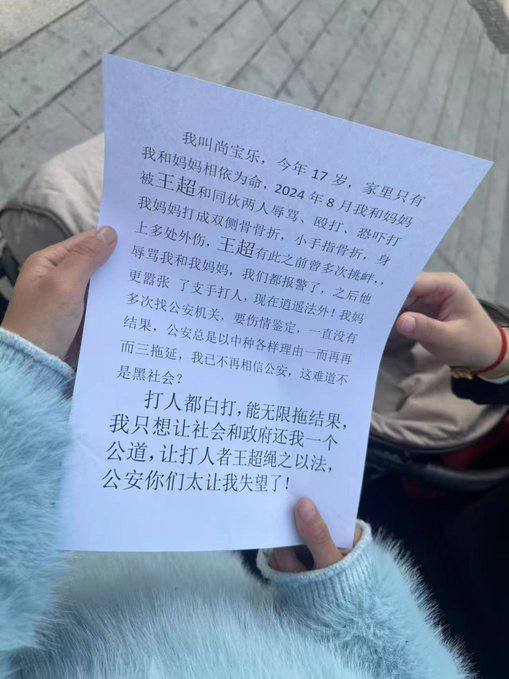 我叫尚宝乐，今年 17 岁，家里只有
我和妈妈相依为命，2024 年 8 月我和妈妈
被王超和同伙两人辱骂、殴打、恐吓打
我妈妈打成双侧骨骨折，小手指骨折，身
上多处外伤，王超有此之前曾多次挑衅，，
辱骂我和我妈妈，我们都报警了，之后他
更嚣张 了支手打人，现在逍遥法外！我妈
多次找公安机关，要伤情鉴定，一直没有
结果，公安总是以中种各样理由一而再再
而三拖延，我已不再相信公安，这难道不
是黑社会？
打人都白打，能无限拖结果，
我只想让社会和政府还我一个
公道，让打人者王超绳之以法，
公安你们太让我失望了！